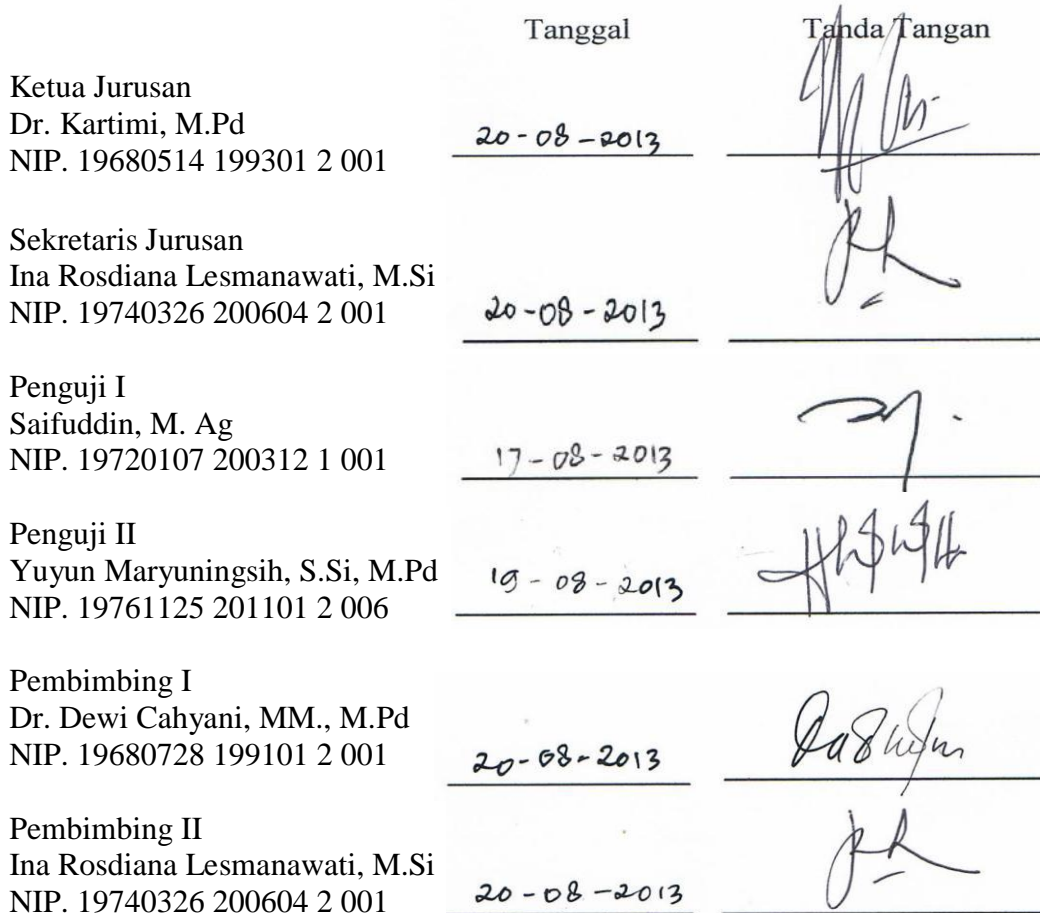 Tanggal Tanda Tangan
Ketua Jurusan
Dr. Kartimi, M.Pd
NIP. 19680514 199301 2 001 20-08-2013
Sekretaris Jurusan
Ina Rosdiana Lesmanawati, M.Si
NIP. 19740326 200604 2 001 20-08-2013
Penguji I
Saifuddin, M. Ag
NIP. 19720107 200312 1 001 17-08-2013
Penguji II
Yuyun Maryuningsih, S.Si, M.Pd
NIP. 19761125 201101 2 006 19-08-2013
Pembimbing I
Dr. Dewi Cahyani, MM., M.Pd
NIP. 19680728 199101 2 001 20-08-2013
Pembimbing II
Ina Rosdiana Lesmanawati, M.Si
NIP. 19740326 200604 2 001 20-08-2013